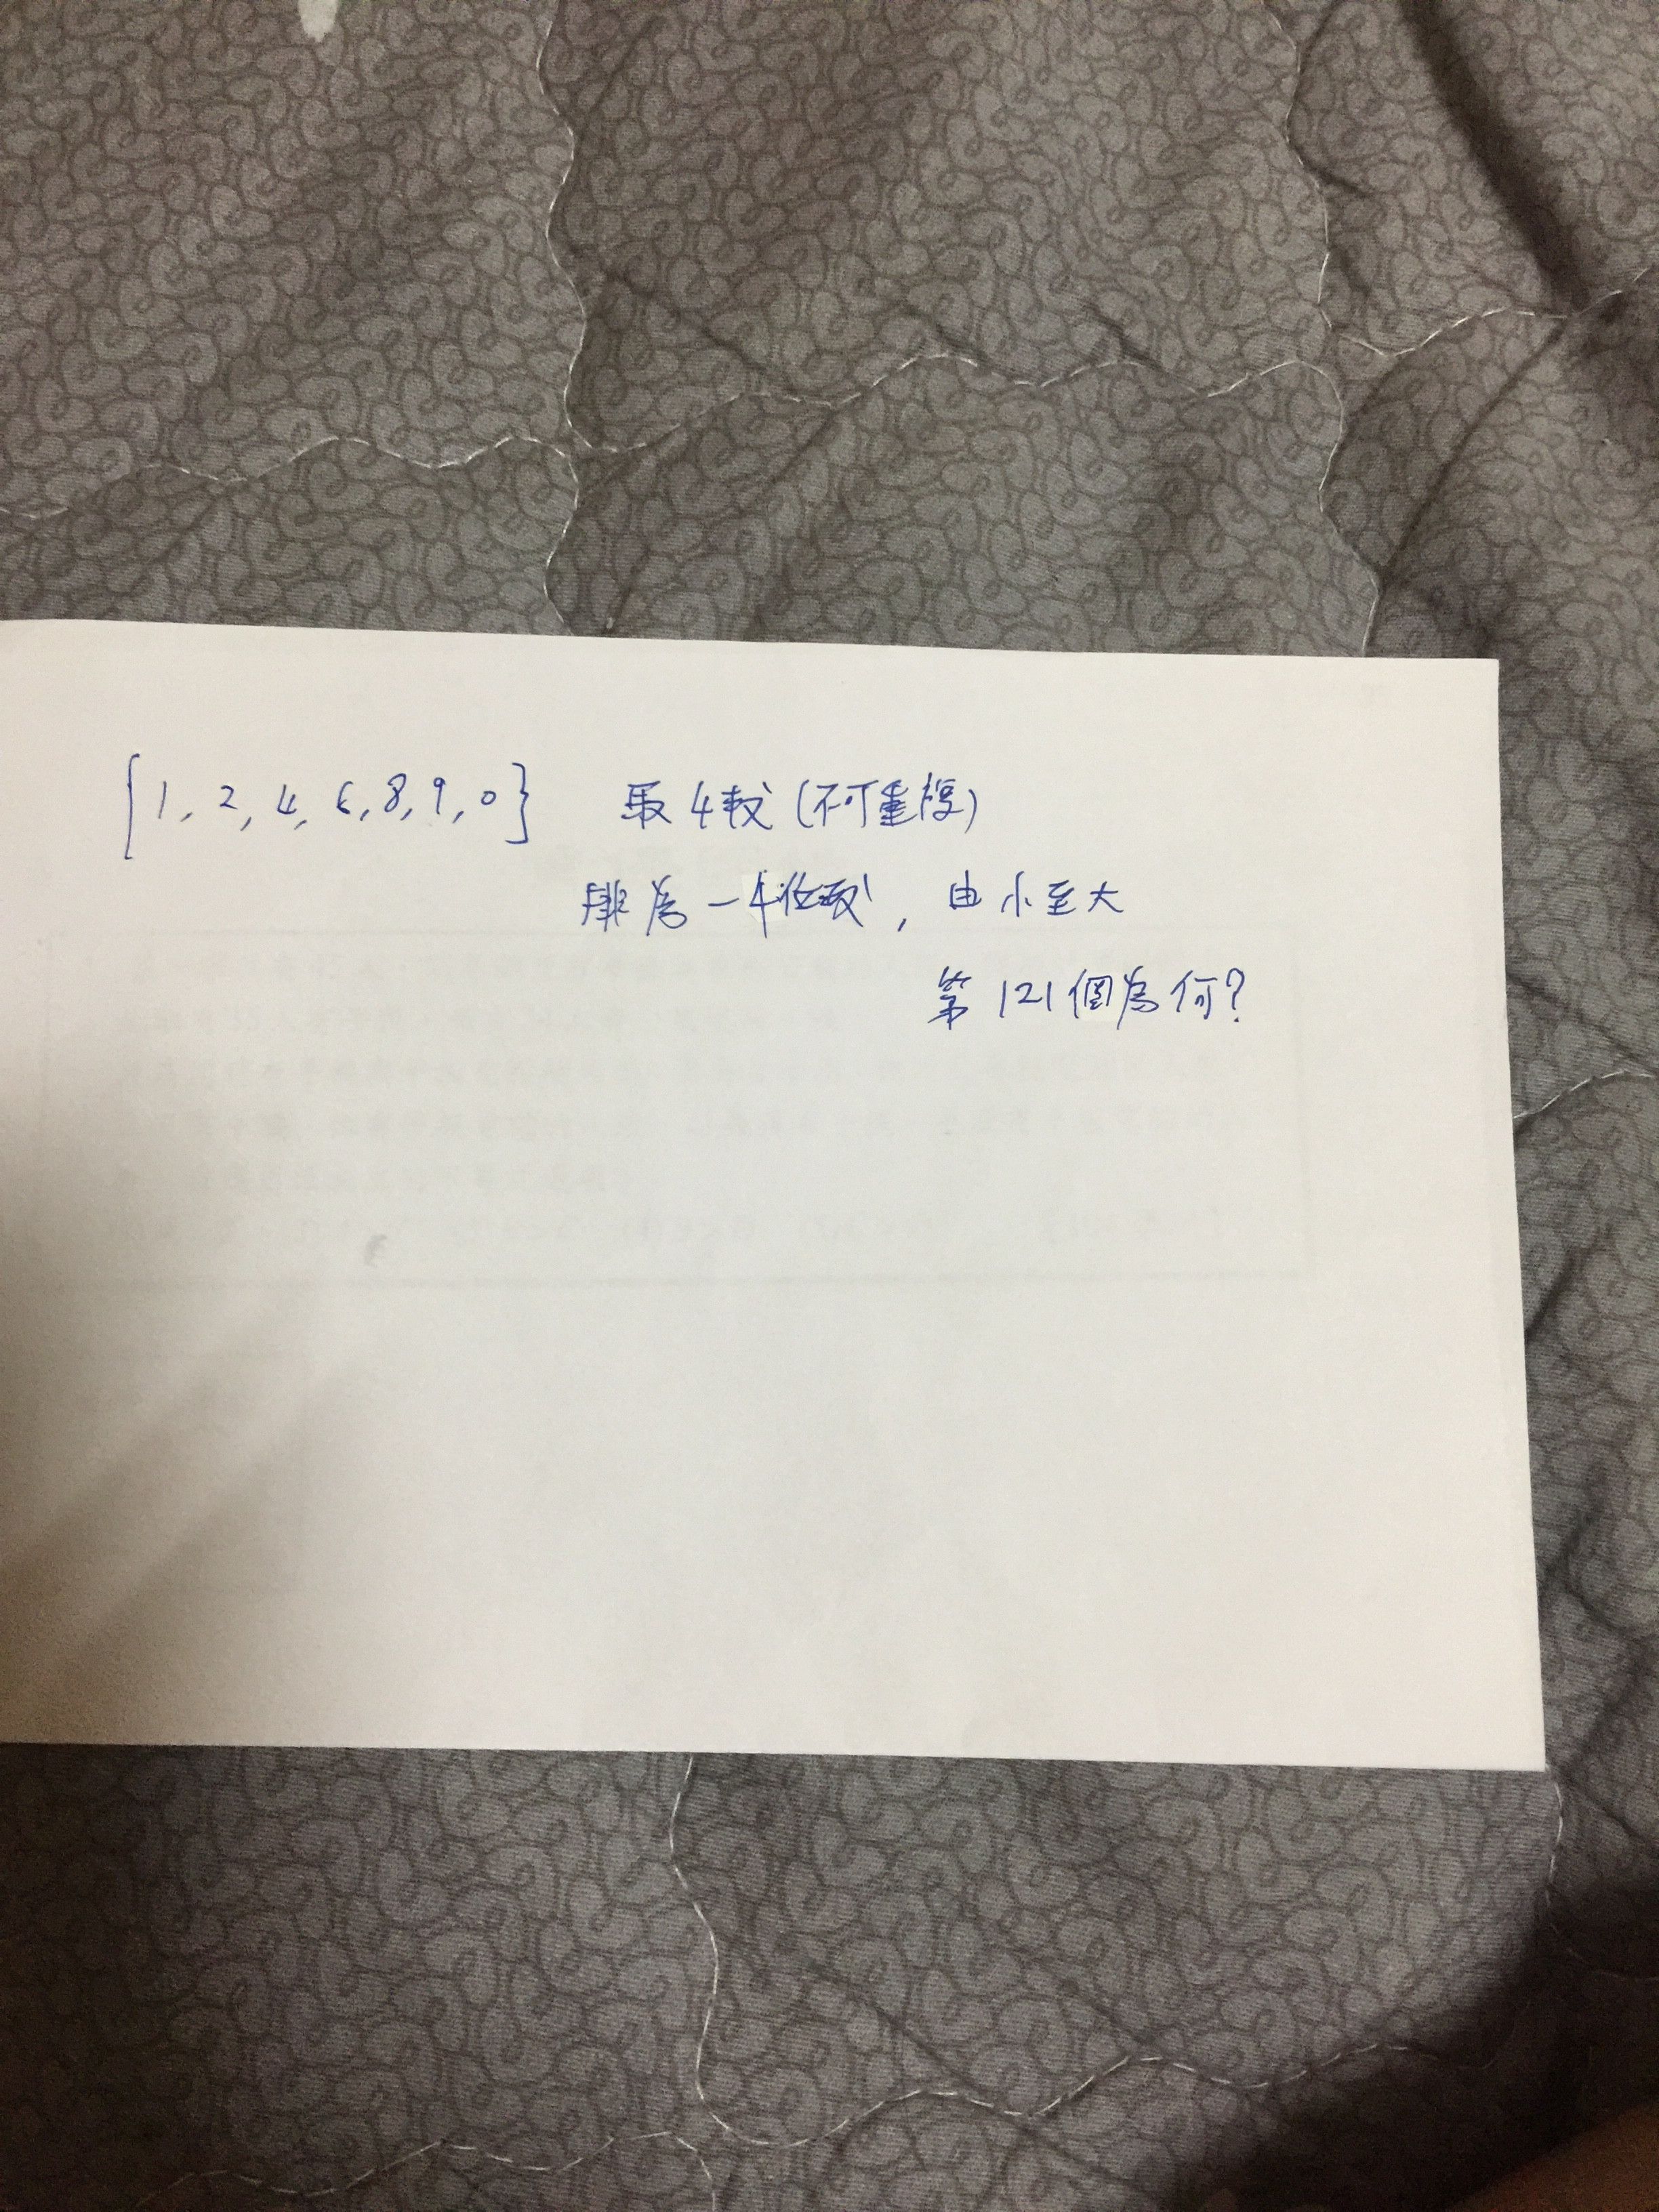 {1, 2, 4, 6, 8, 9, 0} 取4數(不可重複)
排為一4位數, 由小至大
第121個為何?